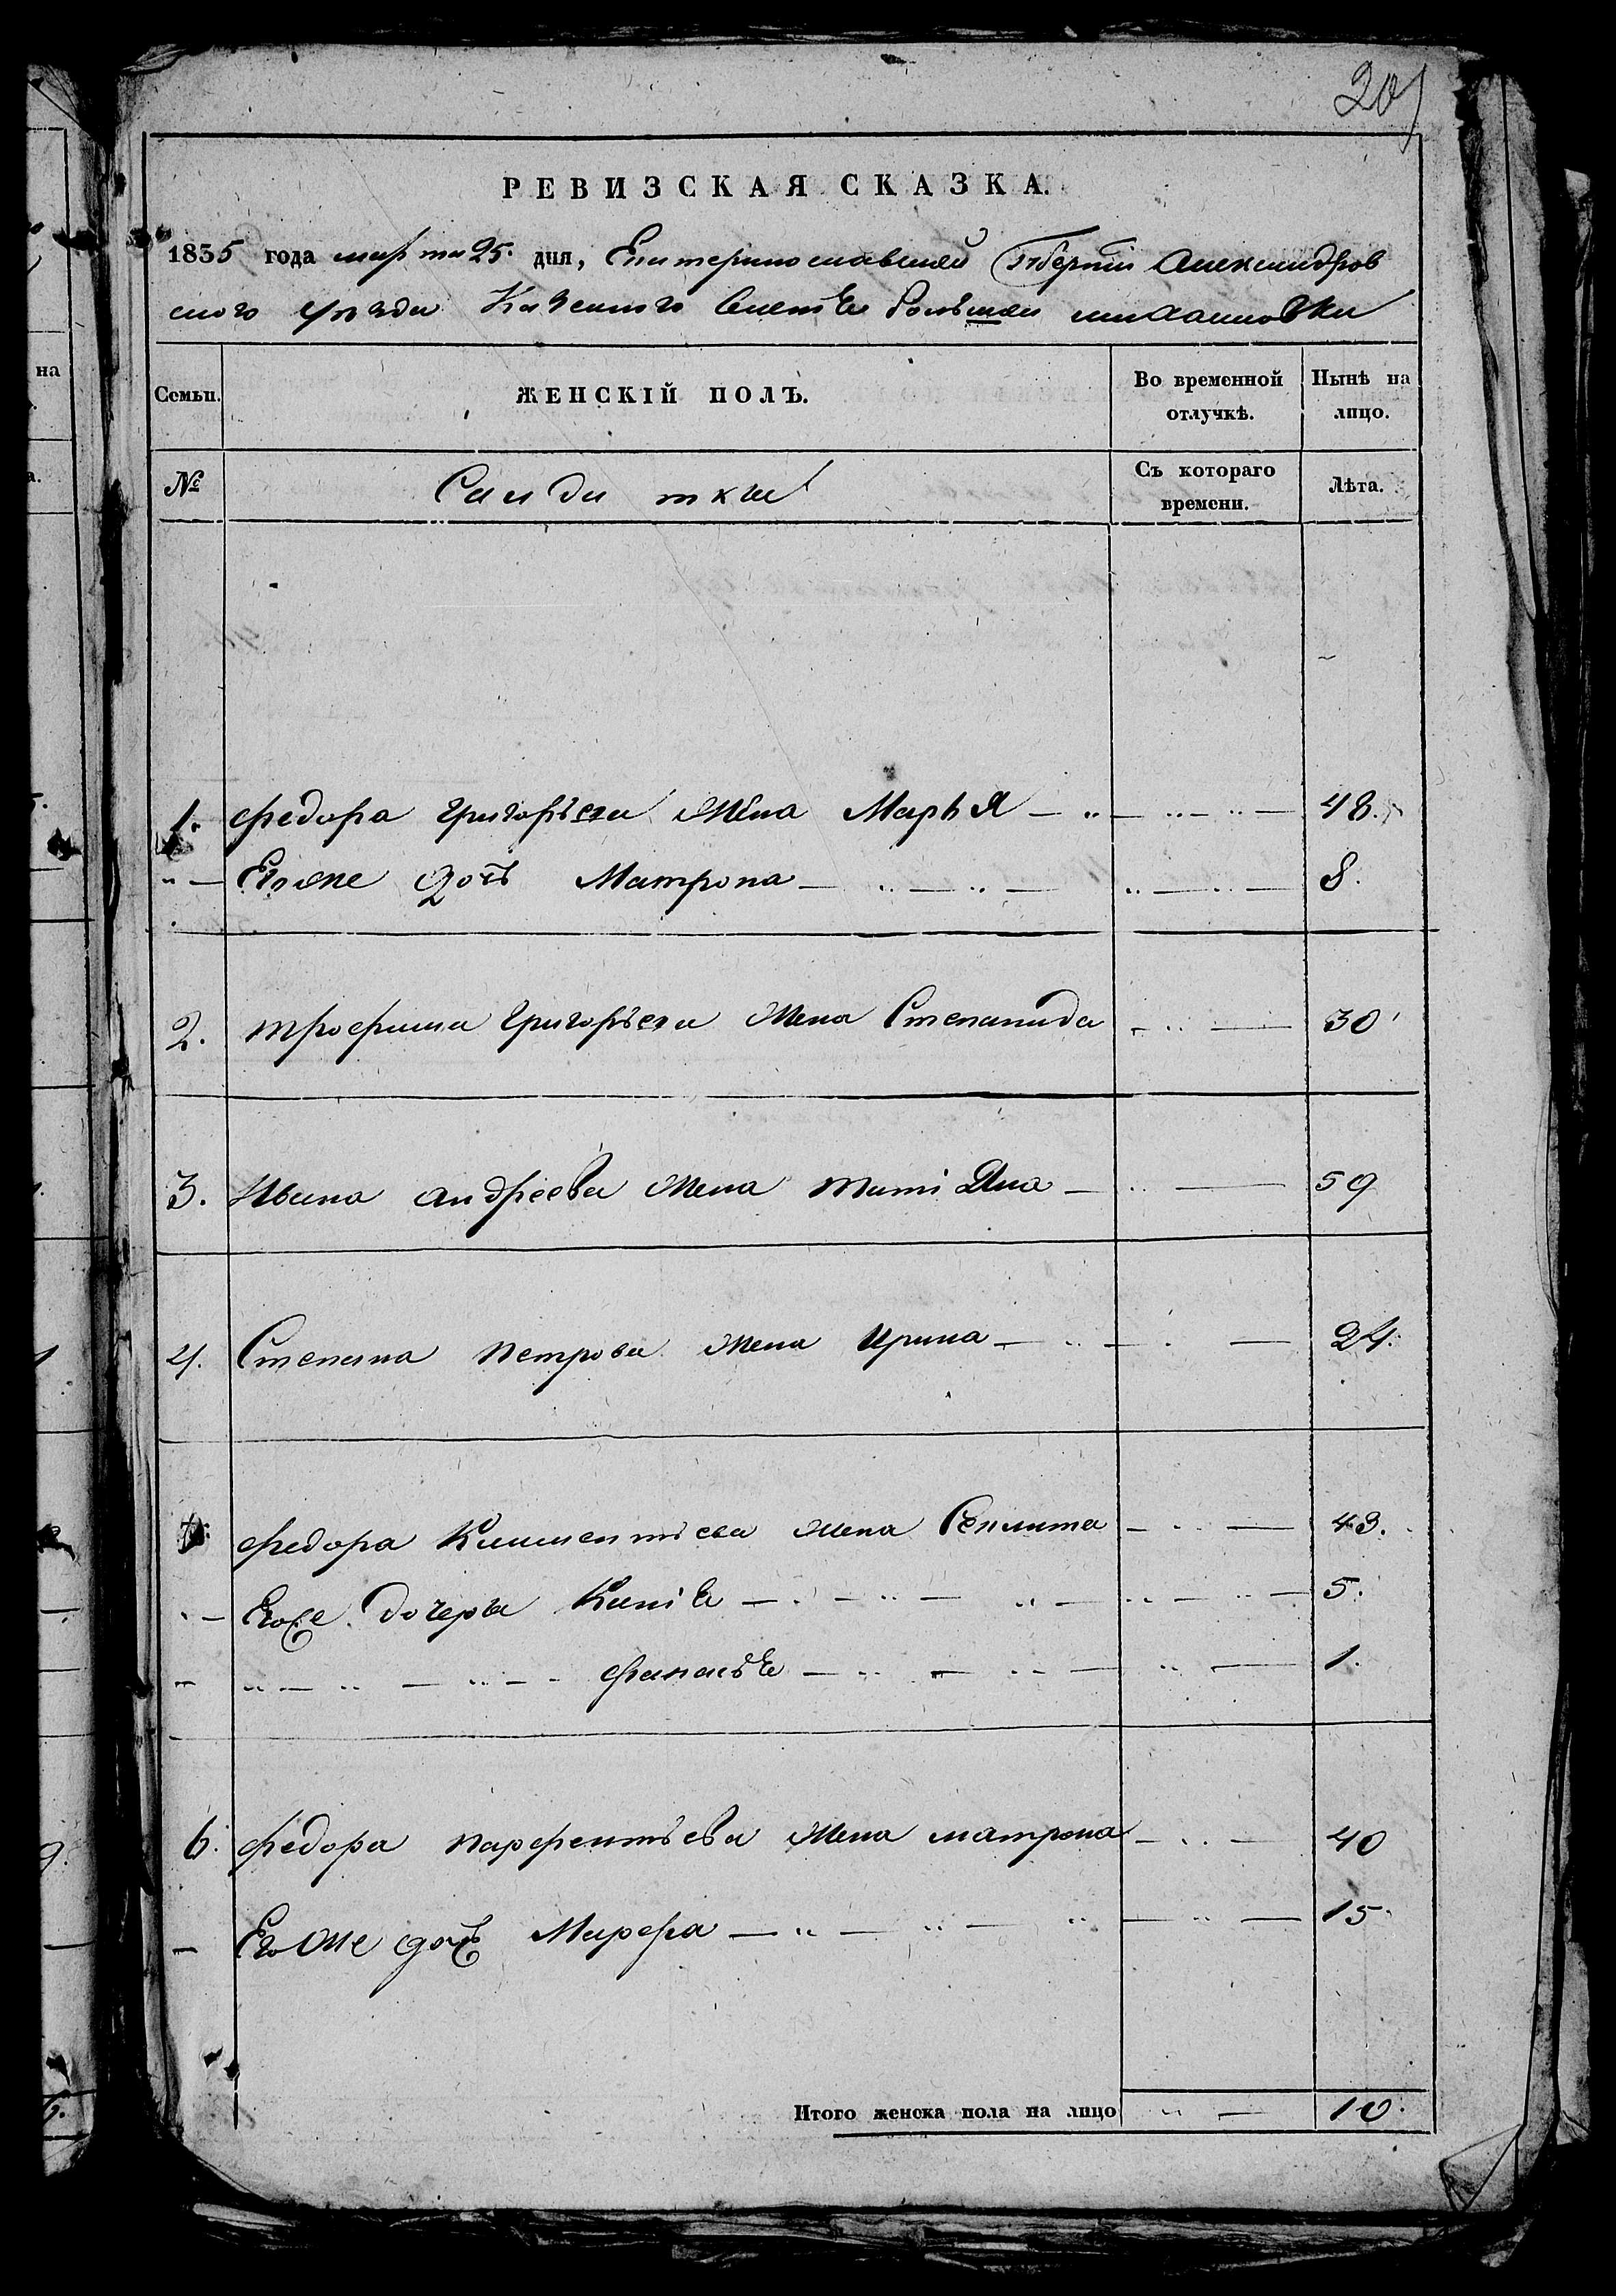 207
РЕВИЗСКАЯ СКАЗКА.
1835 года марта 25. дня, Екатеринославской Губерніи Александров
ского уезда Казенного Селенія Большой михайловки
Семьи. ЖЕНСКІЙ ПОЛЪ. Во временной отлучкѣ. Нынѣ на лицо.
№ Салдатки Съ котораго времени. Лѣта.
1. федора григорьева Жена Марья 48.
Егоже дочь Матрона 8.
2. трофима григорьева Жена Степанида 30
3. Ивана андреева Жена татіяна 59
4. Степана петрова Жена Ирина 24.
федора Климентьева жена 43.
Егоже дочеря 5.
1.
6. федора парфентьева Жена матрона 40
Егоже дочь Марфа 15.
Итого женска пола на лицо 10.
на